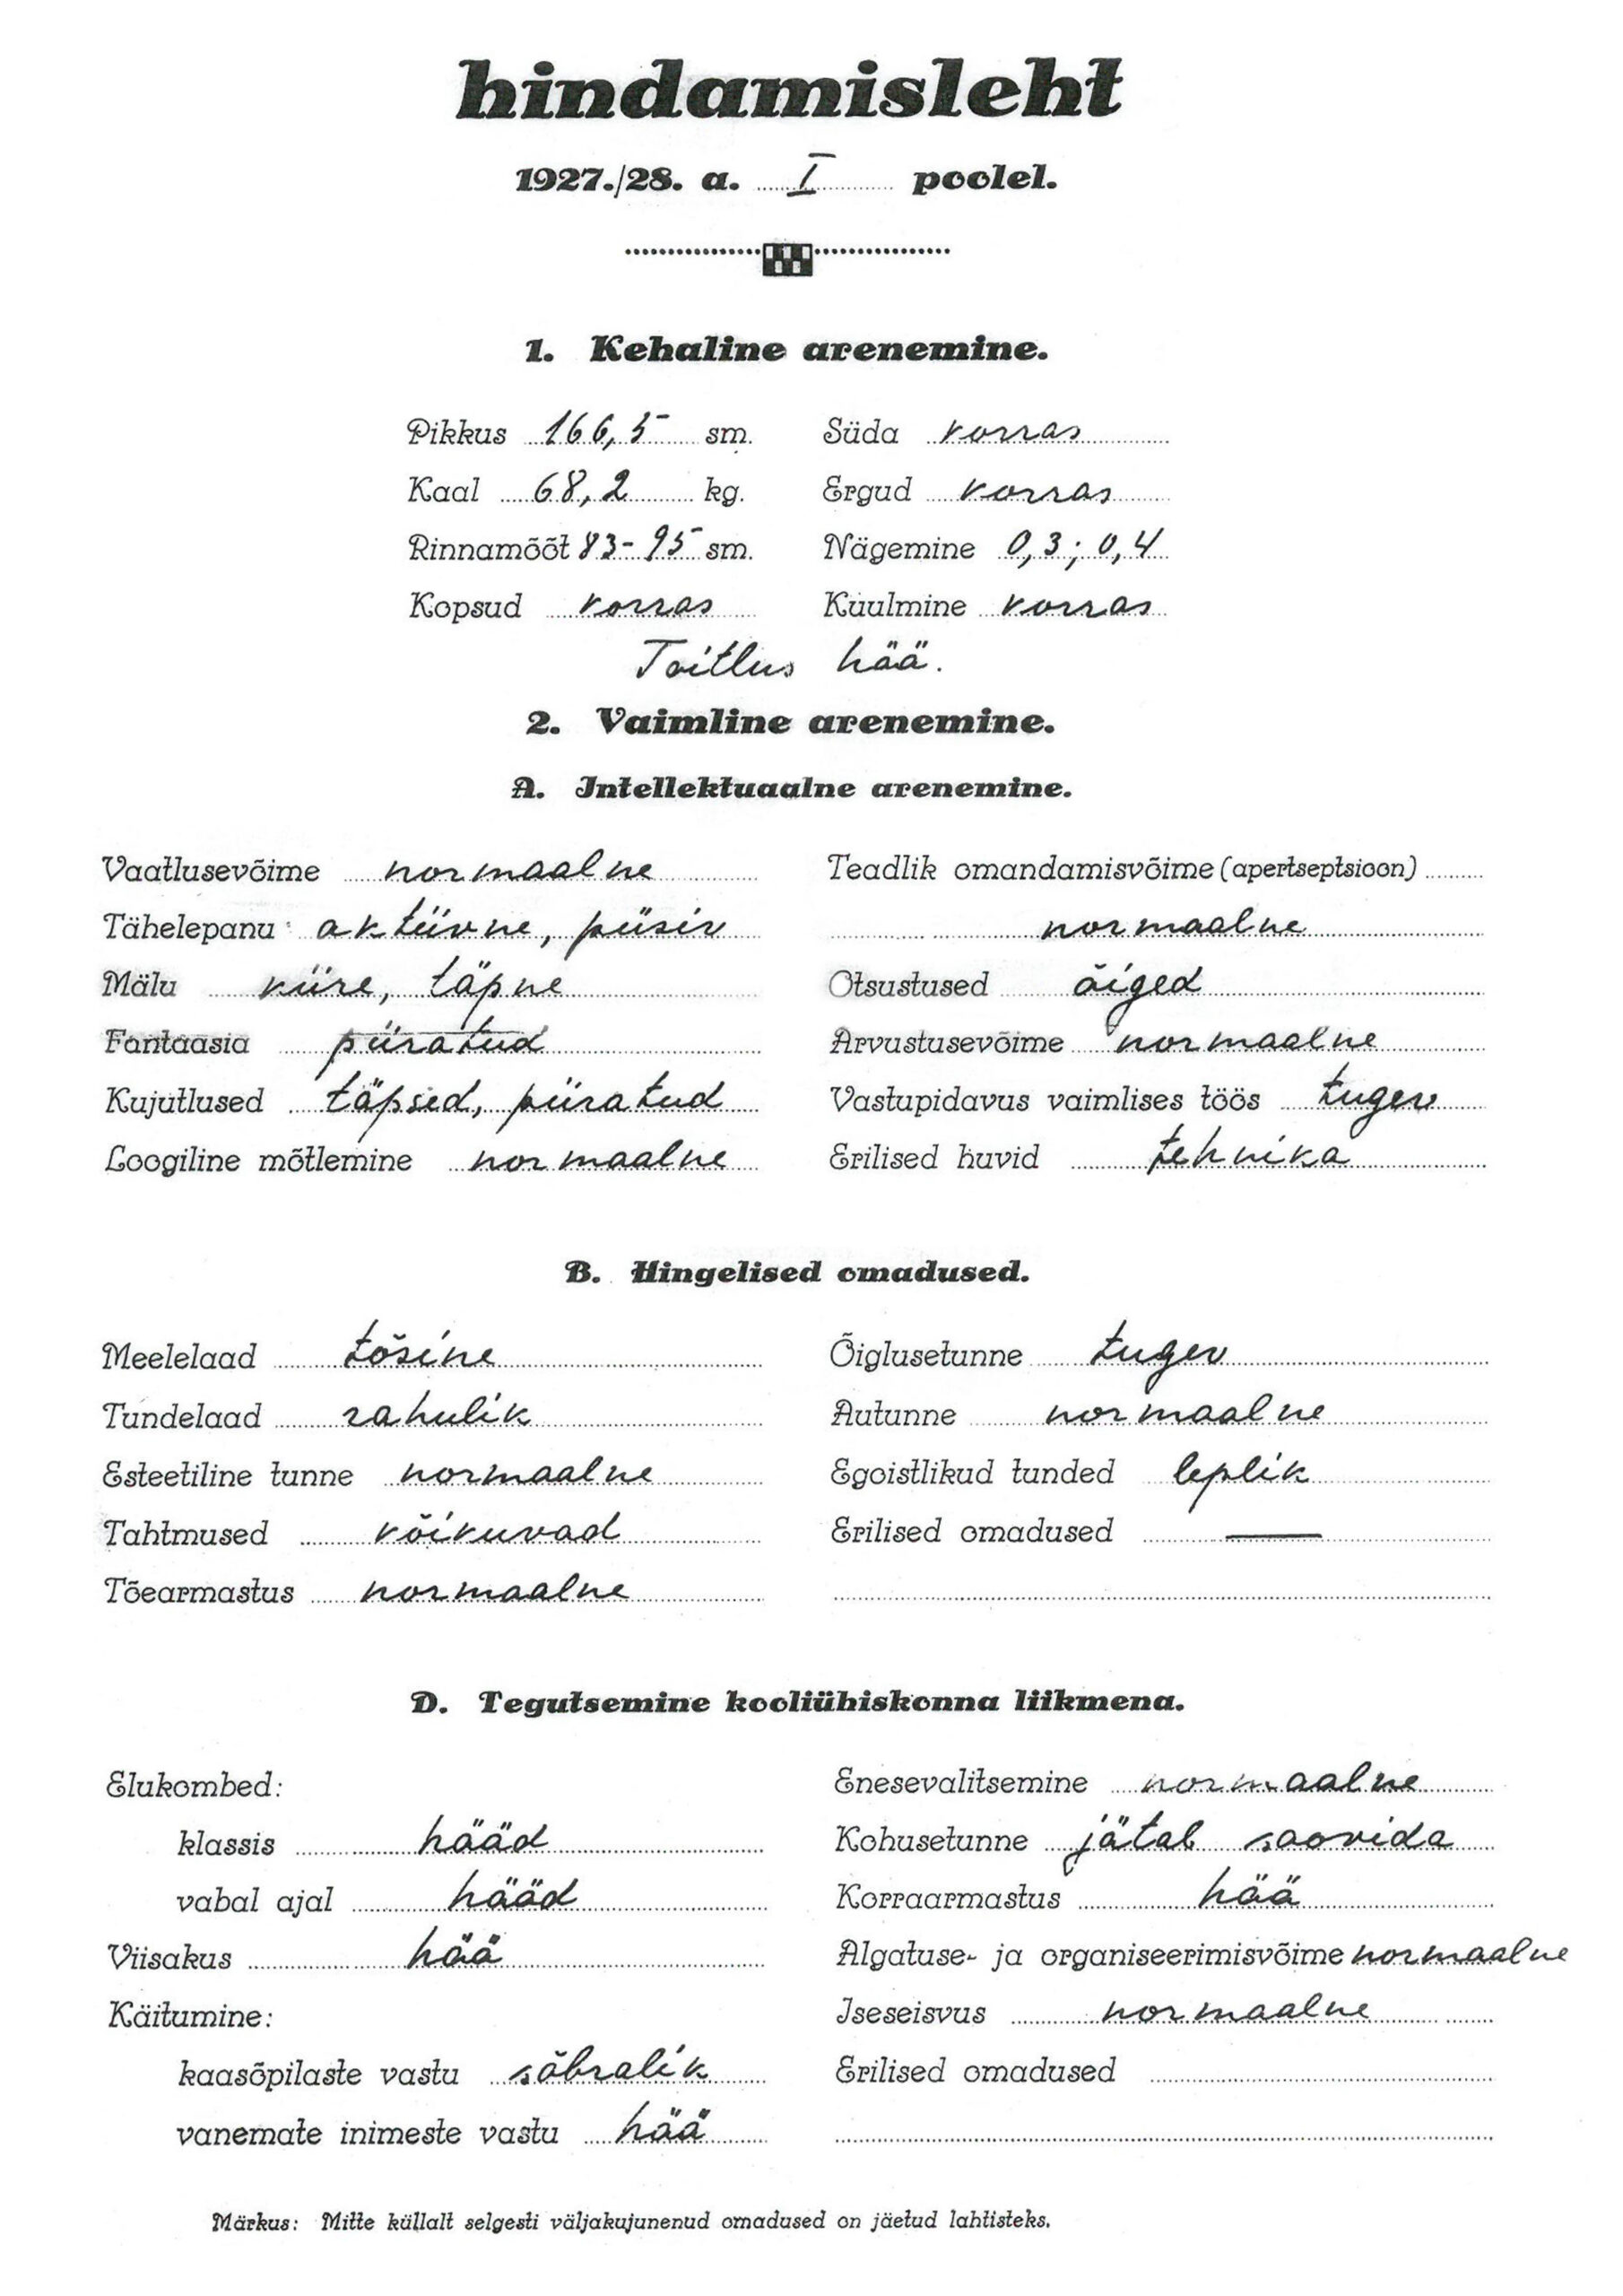 hindamisleht
1927./28. a. I poolel.
1. Kehaline arenemine.
Pikkus 166,5 sm. Süda korras
Kaal 68,2 kg. Ergud korras
Rinnamõõt 83-95 sm. Nägemine 0,3; 0,4
Kopsud korras Kuulmine korras
Toitlus hää.
2. Vaimline arenemine.
A. Intellektuaalne arenemine.
Vaatlusevõime normaalne Teadlik omandamisvõime (apertseptsioon)
Tähelepanu aktiivne, püsiv normaalne
Mälu kiire, täpne Otsustused õiged
Fantaasia piiratud Arvustusevõime normaalne
Kujutlused täpsed, piiratud Vastupidavus vaimlises töös tugev
Loogiline mõtlemine normaalne Erilised huvid tehnika
B. Hingelised omadused.
Meelelaad tõsine Õiglusetunne tugev
Tundelaad rahulik Autunne normaalne
Esteetiline tunne normaalne Egoistlikud tunded leplik
Tahtmused kõikuvad Erilised omadused —
Tõearmastus normaalne
D. Tegutsemine kooliühiskonna liikmena.
Elukombed: Enesevalitsemine normaalne
klassis hääd Kohusetunne jätab soovida
vabal ajal hääd Korraarmastus hää
Viisakus hää Algatuse- ja organiseerimisvõime normaalne
Käitumine: Iseseisvus normaalne
kaasõpilaste vastu sõbralik Erilised omadused
vanemate inimeste vastu hää
Märkus: Mitte küllalt selgesti väljakujunenud omadused on jäetud lahtisteks.